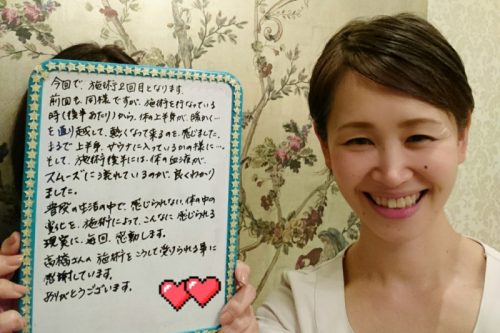 今回で、施術2回目となります。
前回も、同様ですが、施術を行なっている
時(後半あたり)から、体の上半身が、暖かく…
を通り越して、熱くなって来るのを感じました、
まるで上半身、サウナに入っているかの様に…。
そして、施術後半には、体の血液が、
スムーズに流れているのが、良くわかり
ました。
普段の生活の中で、感じられない、体の中の
変化を、施術によって、こんなに感じられる
現実に、毎回、感動します。
高橋さんの施術をこうして受けられる事に
感謝しています。
ありがとうございます。